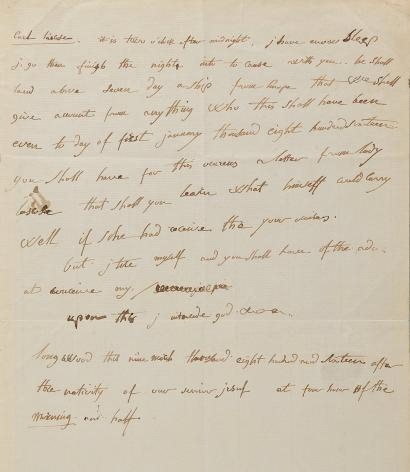 Count lascase. it is two o'clock after midnight, j have enow sleep
j go then finish the night into to cause with you. he shall
land above seven day a ship from Europe that we shell
give account from anything who this shall have been
even to day of first january thousand eight hundred sixteen
you shall have for this ocurens a letter from lady
lascase that shall you learn what himself could carry
well if she had receive the your occurens.
but j tire myself and you shall have of the ado.
at conceive my
upon this j intende god
longwood this nine march thousand eight hundred and sixteen after
the nativity of our jesus at four hour of the
morning and half